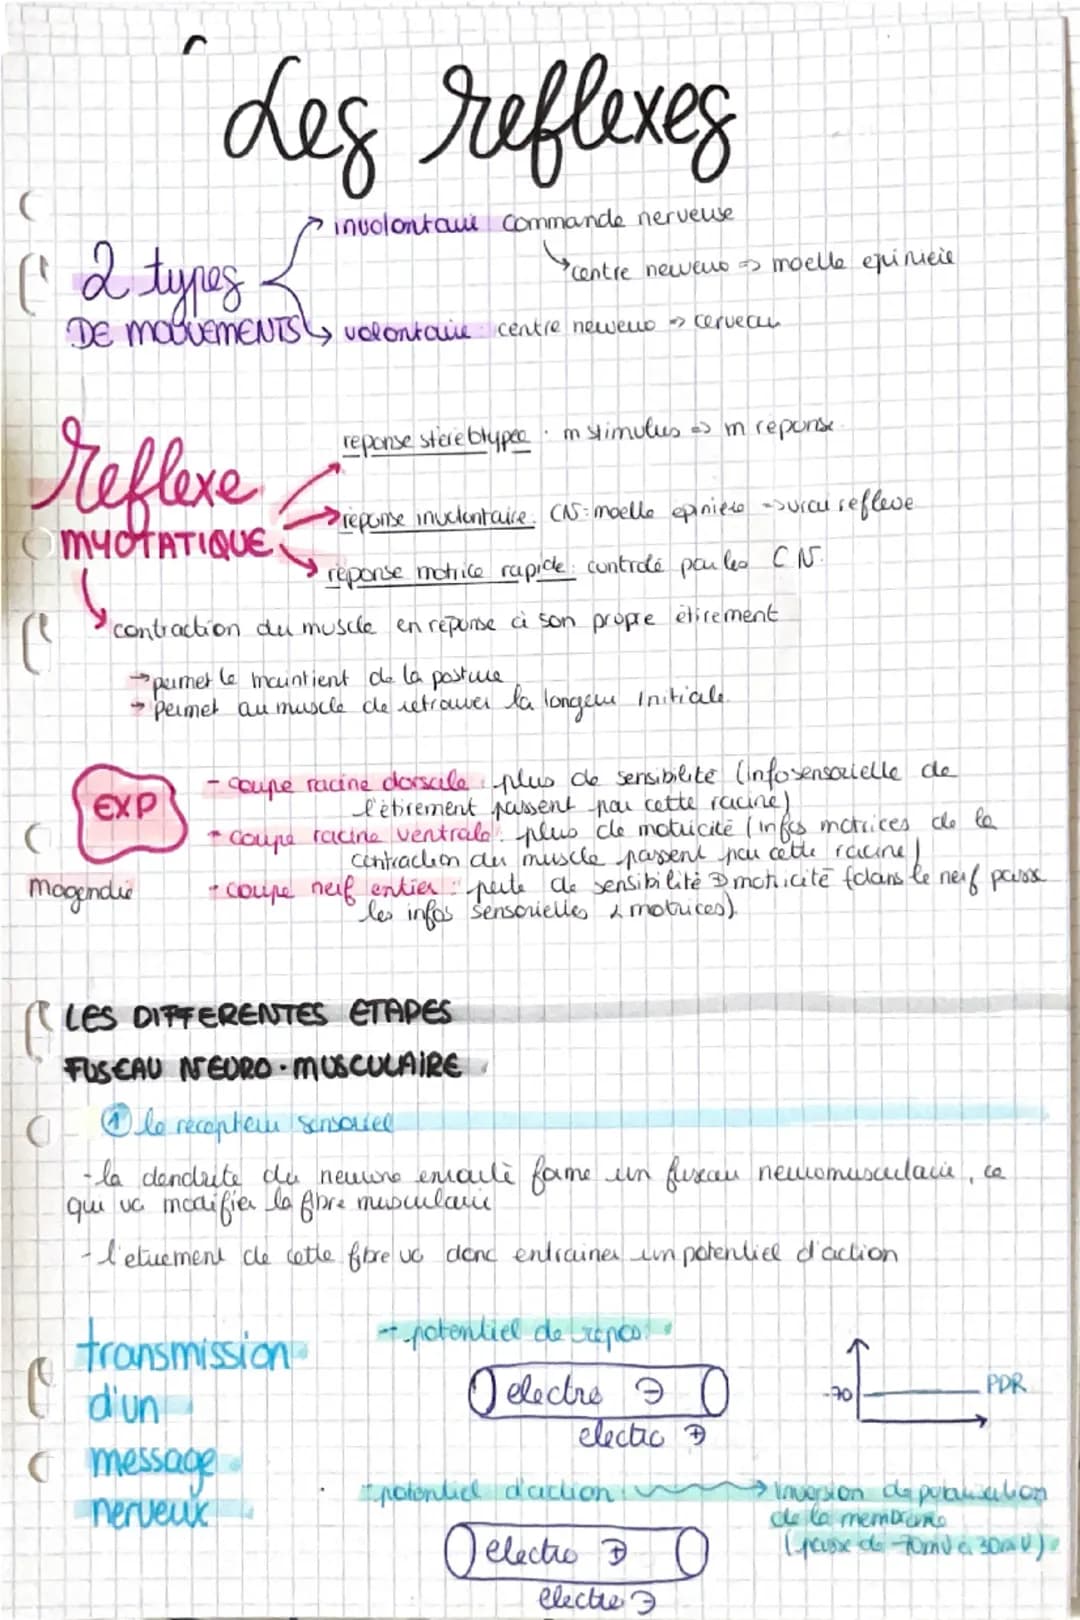 Les reflexes
involontaire commande nerveuse
centre nerveux => moelle epiniere
2 types
DE MOUVEMENTS
volontaire : centre nerveux => cerveau
reponse stéréotypée : m stimulus => m reponse
Reflexe
MYOTATIQUE
réponse involontaire : CN = moelle epiniere -> vrai reflexe
réponse motrice rapide : controlé par les CN.
contraction du muscle en réponse à son propre étirement
→ permet le maintient de la posture
→ permet au muscle de retrouver la longeur initiale.
EXP
magendie
- coupe racine dorsale : plus de sensibilité (info sensorielle de
l'étirement passent par cette racine)
- coupe racine ventrale : plus de motricité (infos motrices de la
contraction du muscle passent par cette racine)
- coupe nerf entier : perte de sensibilité motricité (dans le nerf passe
les infos sensorielles & motrices).
LES DIFFERENTES ETAPES
FUSEAU NEURO-MUSCULAIRE
① le recepteur sensoriel
- la dendrite du neurone enroulé forme un fuseau neuromusculaire, ce
qui va modifier la fibre musculaire
- l'etirement de cette fibre va donc entrainer un potentiel d'action
transmission
d'un
message
nerveux
→ potentiel de repos :
electro ⊖
electro ⊕
-70
PDR
- potentiel d'action :
inversion de polarisation
de la membrane
(passe de -70mV à 30mV)
electro ⊕
electro ⊖